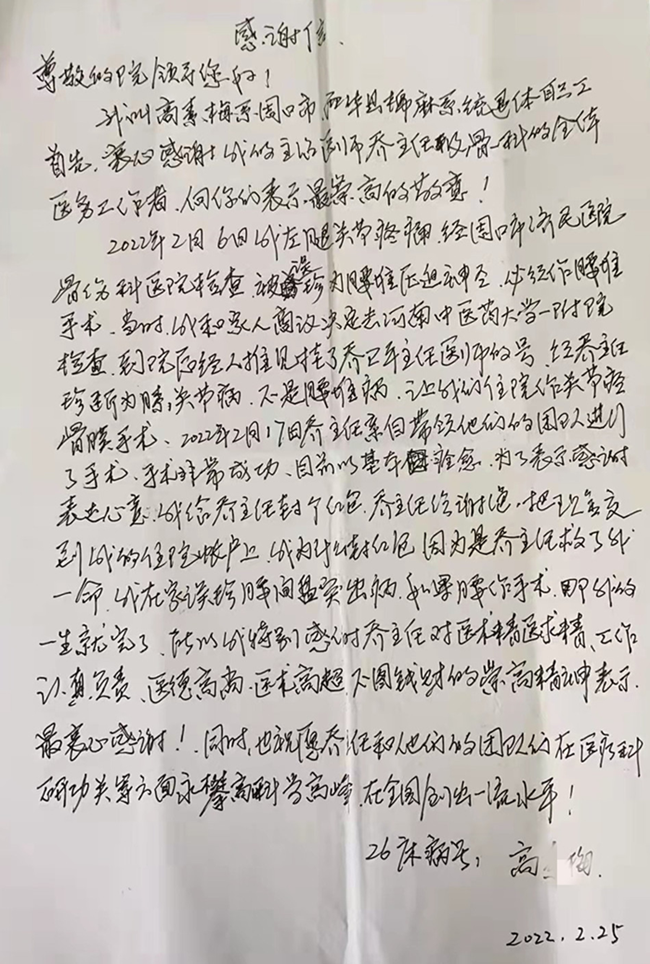 感谢信
尊敬的院领导您好!
我叫高素梅系周口市西华县棉麻系统退休职工
首先,衷心感谢我的主治医师乔主任及骨一科的全体
医务工作者,向你们表示最崇高的敬意!
2022年2月6日我左腿关节疼痛,经周口市济民医院
骨伤科医院检查被误珍为腰椎压迫神经,必经作腰椎
手术。当时,我和家人商议决定去河南中医药大学一附院
检查,到院后经人推见挂了乔卫平主任医师的号,经乔主任
珍断为膝关节病,不是腰椎病,让我们住院作关节腔
骨膜手术、2022年2月17日乔主任亲自带领他们的团队进行
了手术,手术非常成功、目前以基本痊愈,为了表示感谢
表达心意,我给乔主任封个红包,乔主任给谢绝,把现金交
到我的住院帐户上,我为什么封红包 因为是乔主任救了我
一命,我在家误珍腰间盘突出病,如果腰作手术,那我的
一生就完了,所以我特别感谢乔主任对医术精医求精、工作
认真负责、医德高尚、医术高超、不图钱财的崇高精神表示
最衷心感谢!同时,也祝愿乔任和他们的团队们在医疗科
研功关等方面永攀高科学高峰,在全国创出一流水平!
26床病号:高
2022.2.25